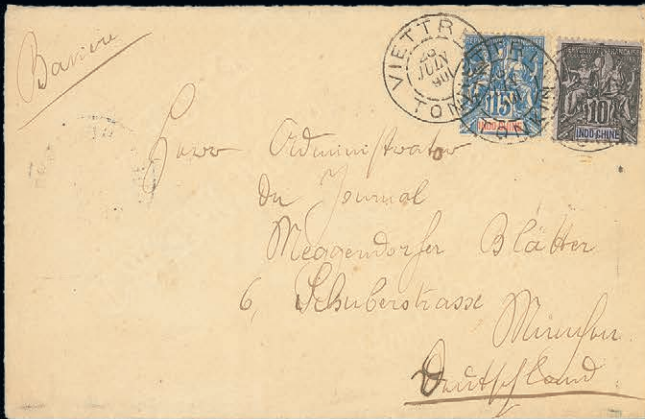 Bavière
VIETTRI
23
JUIN
TONKIN
15
INDO-CHINE
10
INDO-CHINE
Herr Administrator
du Journal
Meggendorfer Blätter
6, Schuberstrasse
München
Deutschland